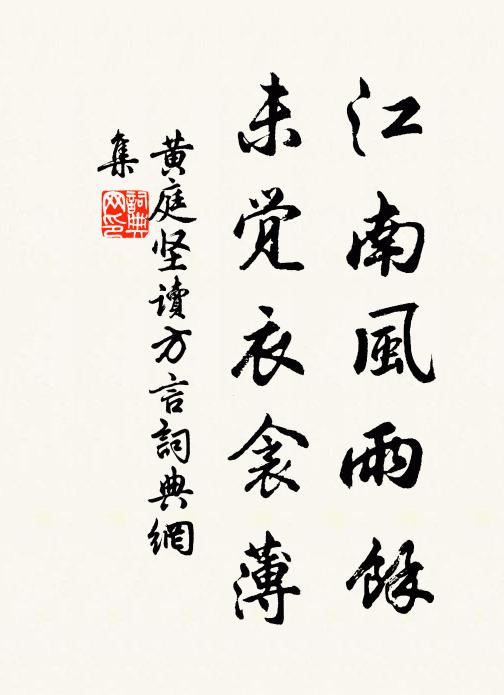 江南風雨餘
未觉衣衾薄
黄庭坚讀方言詞典網
集
詞典网印